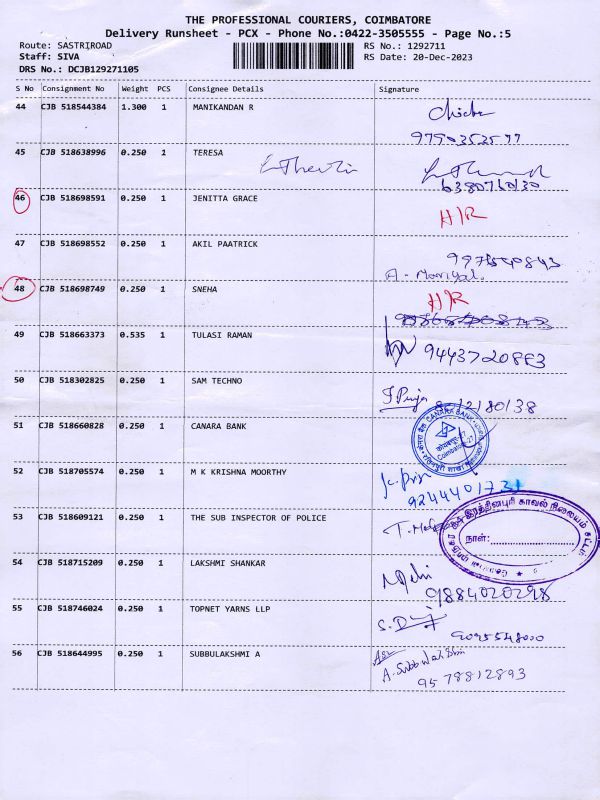 THE PROFESSIONAL COURIERS, COIMBATORE
Delivery Runsheet - PCX - Phone No.:0422-3505555 - Page No.:5
Route: SASTRIROAD RS No.: 1292711
Staff: SIVA RS Date: 20-Dec-2023
DRS No.: DCJB129271105
S No Consignment No Weight PCS Consignee Details Signature
44 CJB 518544384 1.300 1 MANIKANDAN R
45 CJB 518638996 0.250 1 TERESA
46 CJB 518698591 0.250 1 JENITTA GRACE H/R
47 CJB 518698552 0.250 1 AKIL PAATRICK
48 CJB 518698749 0.250 1 SNEHA H/R
49 CJB 518663373 0.535 1 TULASI RAMAN
50 CJB 518302825 0.250 1 SAM TECHNO
51 CJB 518660828 0.250 1 CANARA BANK
CANARA BANK
52 CJB 518705574 0.250 1 M K KRISHNA MOORTHY
9244401731
53 CJB 518609121 0.250 1 THE SUB INSPECTOR OF POLICE
இரத்தினபுரி காவல் நிலையம்
நாள்:
54 CJB 518715209 0.250 1 LAKSHMI SHANKAR
9884020298
55 CJB 518746024 0.250 1 TOPNET YARNS LLP
56 CJB 518644995 0.250 1 SUBBULAKSHMI A
9578812893